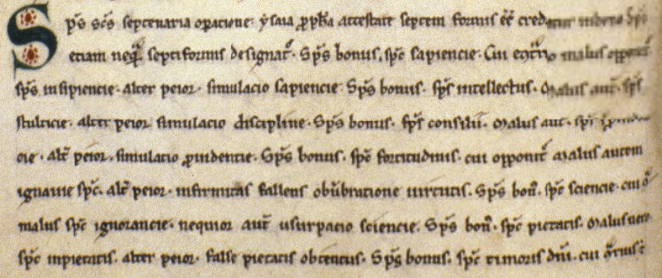 Sp̄s sc̄s septenaria opacione· ysaia ꝓph̄a attestante septem formis ēē cred
etiam neq̄ septiformis designat᷑· Sp̄s bonus, spc̄ sapiencie· Cui malus opponit᷑
sp̄s insipiencie· alter peior· simulacio sapiencie· Sp̄s bonus· sp̄s intellectus· Malus aut̄· sp̄s
stulticie· alter peior simulacio discipline· Sp̄s bonus· sp̄s consilii· Malus aut̄· sp̄s
cie· alt̄ peior· simulacio ꝓuidentie· Sp̄s bonus· spc̄ fortitudinis· cui opponit᷑ malus autem
ignauie spc̄· alt̄ peior· infirmitas fallens obūbratione uirtutis· Sp̄s bon᷒· spc̄ sciencie· cui
malus spc̄ ignorancie· nequior aut̄ usurpacio sciencie· Sp̄s bon᷒· spc̄ pietatis· Malus uero
spc̄ inpietatis· alter peior· false pietatis obtentus· Sp̄s bonus· spc̄ timoris dn̄i· cui